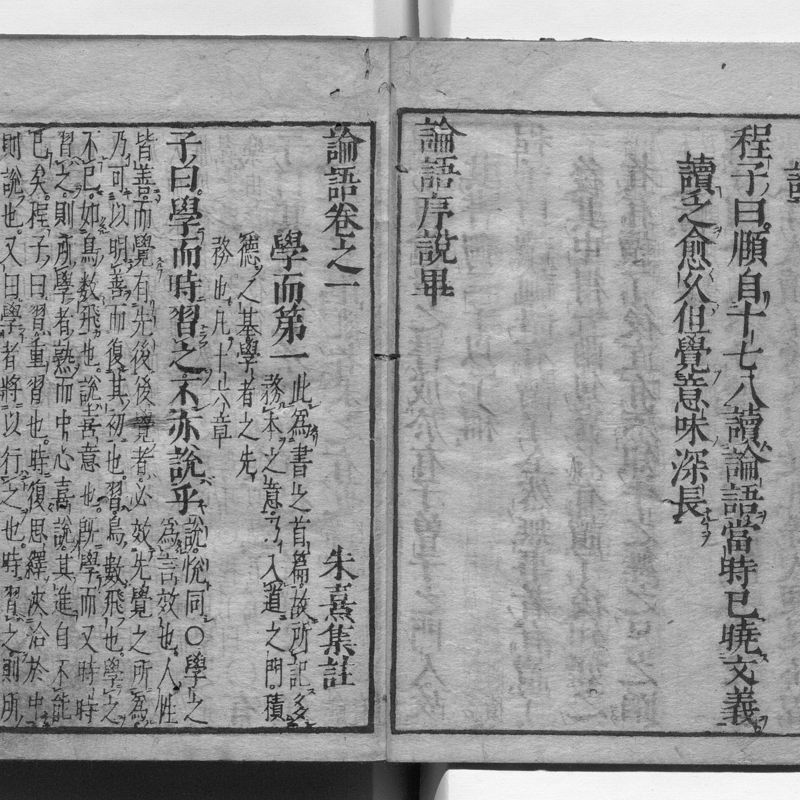 程子曰願自十七八讀論語當時已曉文義
讀之愈久但覺意味深長
論語序說畢
論語卷之一
朱熹集註
學而第一
此爲書之首篇故所記多
務本之意乃入道之門積
德之基學者之先
務也凡十六章
子曰學而時習之不亦說乎
說悅同○學之
爲言效也人性
皆善而覺有先後後覺者必效先覺之所爲
乃可以明善而復其初也習鳥數飛也學之
不已如鳥數飛也說喜意也旣學而又時時
習之則所學者熟而中心喜說其進自不能
已矣程子曰習重習也時復思繹浹洽於中
則說也又曰學者將以行之也時習之則所